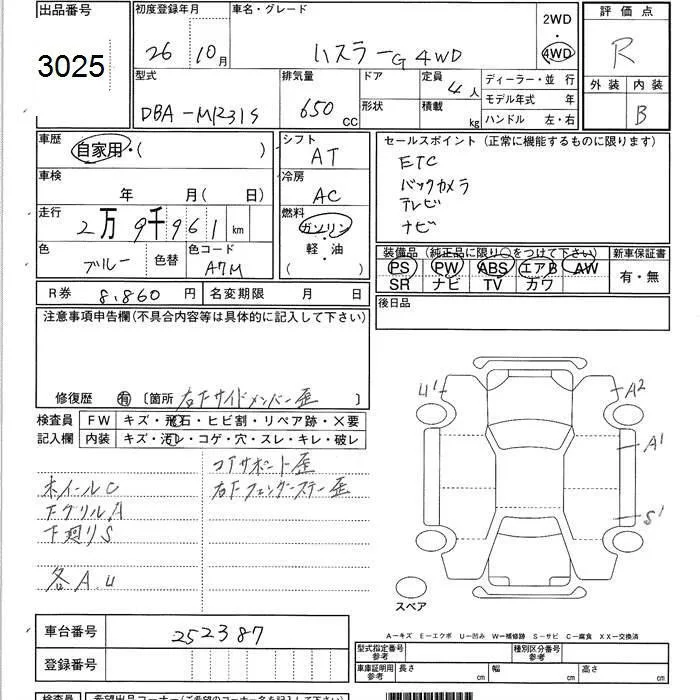 出品番号
3025
初度登録年月
26年 10月
車名・グレード
ハスラー G 4WD
2WD
・
4WD
評価点
R
外装 内装
B
型式
DBA-MR31S
排気量
650 cc
ドア
形状
定員
4人
積載
kg
ディーラー・並 行
モデル年式 年
ハンドル 左・右
車歴
自家用・( )
シフト
AT
車検
年 月( 日)
冷房
AC
走行
2万9千961 km
燃料
ガソリン
・
軽・油
( )
色
ブルー
色替
色コード
A7M
セールスポイント(正常に機能するものに限ります)
ETC
バックカメラ
テレビ
ナビ
装備品(純正品に限り○をつけて下さい)
PS PW ABS エアB AW
SR ナビ TV カワ
新車保証書
有・無
R券 8,860円
名変期限 月 日
後日品
注意事項申告欄(不具合内容等は具体的に記入して下さい)
修復歴 有 〔箇所 右Fサイドメンバー歪
検査員
記入欄
FW キズ・飛石・ヒビ割・リペア跡・×要
内装 キズ・汚レ・コゲ・穴・スレ・キレ・破レ
コアサポート歪
ホイールC
右Fフェンダーステー歪
FグリルA
下廻りS
各A.U
U1
A2
A1
S1
スペア
A―キズ E―エクボ U―凹み W―補修跡 S―サビ C―腐食 XX―交換済
車台番号 252387
登録番号
型式指定番号
参考
種別区分番号
参考
車庫証明用
参考
長さ cm 幅 cm 高さ cm
検査員
希望出品コーナー(ご希望のコーナー名を記入下さい)